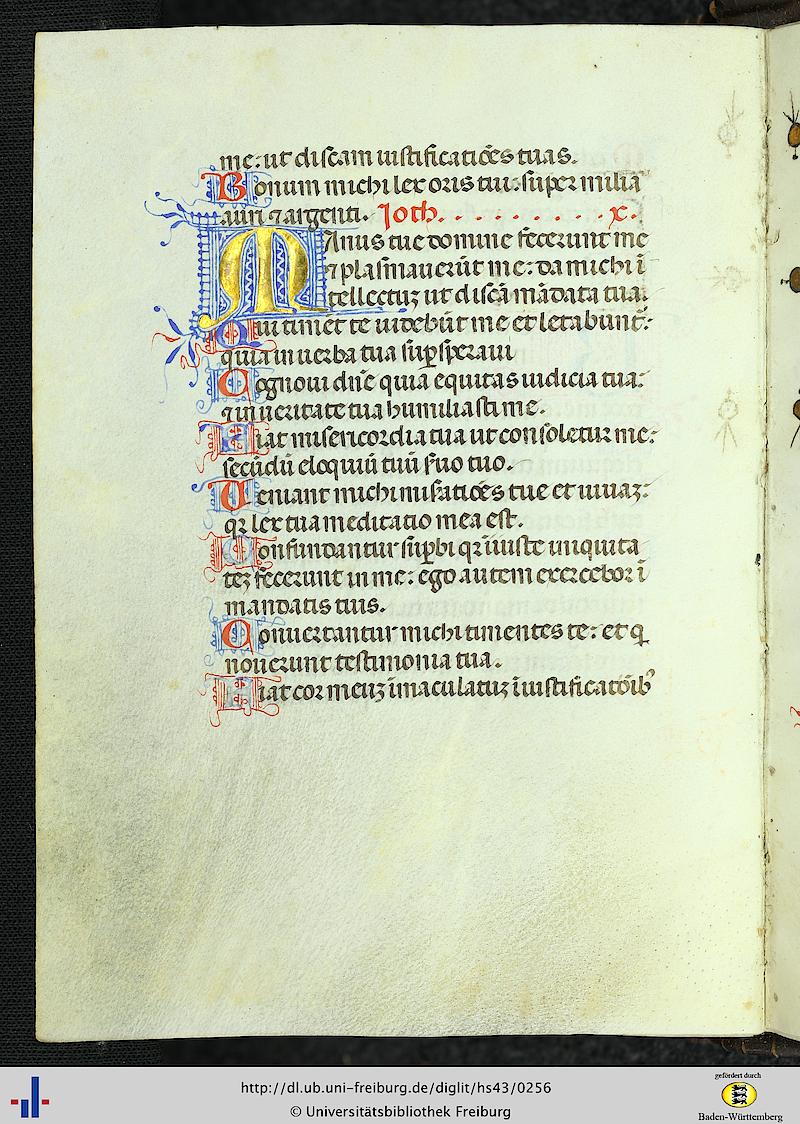 me: ut discam iustificatiões tuas.
Bonum michi lex oris tui: super milia
auri ⁊ argenti. Joth. . . . . . . . . . x.
Manus tue domine fecerunt me
⁊ plasmauerũt me: da michi ĩ
tellectuʒ ut discã mãdata tua.
Qui timẽt te uidebũt me et letabunt᷑:
quia in uerba tua suꝑsperaui
Cognoui dñe quia equitas iudicia tua:
⁊ in ueritate tua humiliasti me.
Fiat misericordia tua ut consoletur me:
secũdũ eloquiũ tuũ suo tuo.
Veniant michi misatiões tue et uiuaʒ:
qꝛ lex tua meditatio mea est.
Confundantur suꝑbi qꝛ ĩiuste iniquita
teʒ fecerunt in me: ego autem exercebor ĩ
mandatis tuis.
Conuertantur michi timentes te: et q
nouerunt testimonia tua.
Fiat cor meuʒ ĩmaculatuʒ ĩ iustificatõib᷒
http://dl.ub.uni-freiburg.de/diglit/hs43/0256
© Universitätsbibliothek Freiburg
gefördert durch
Baden-Württemberg